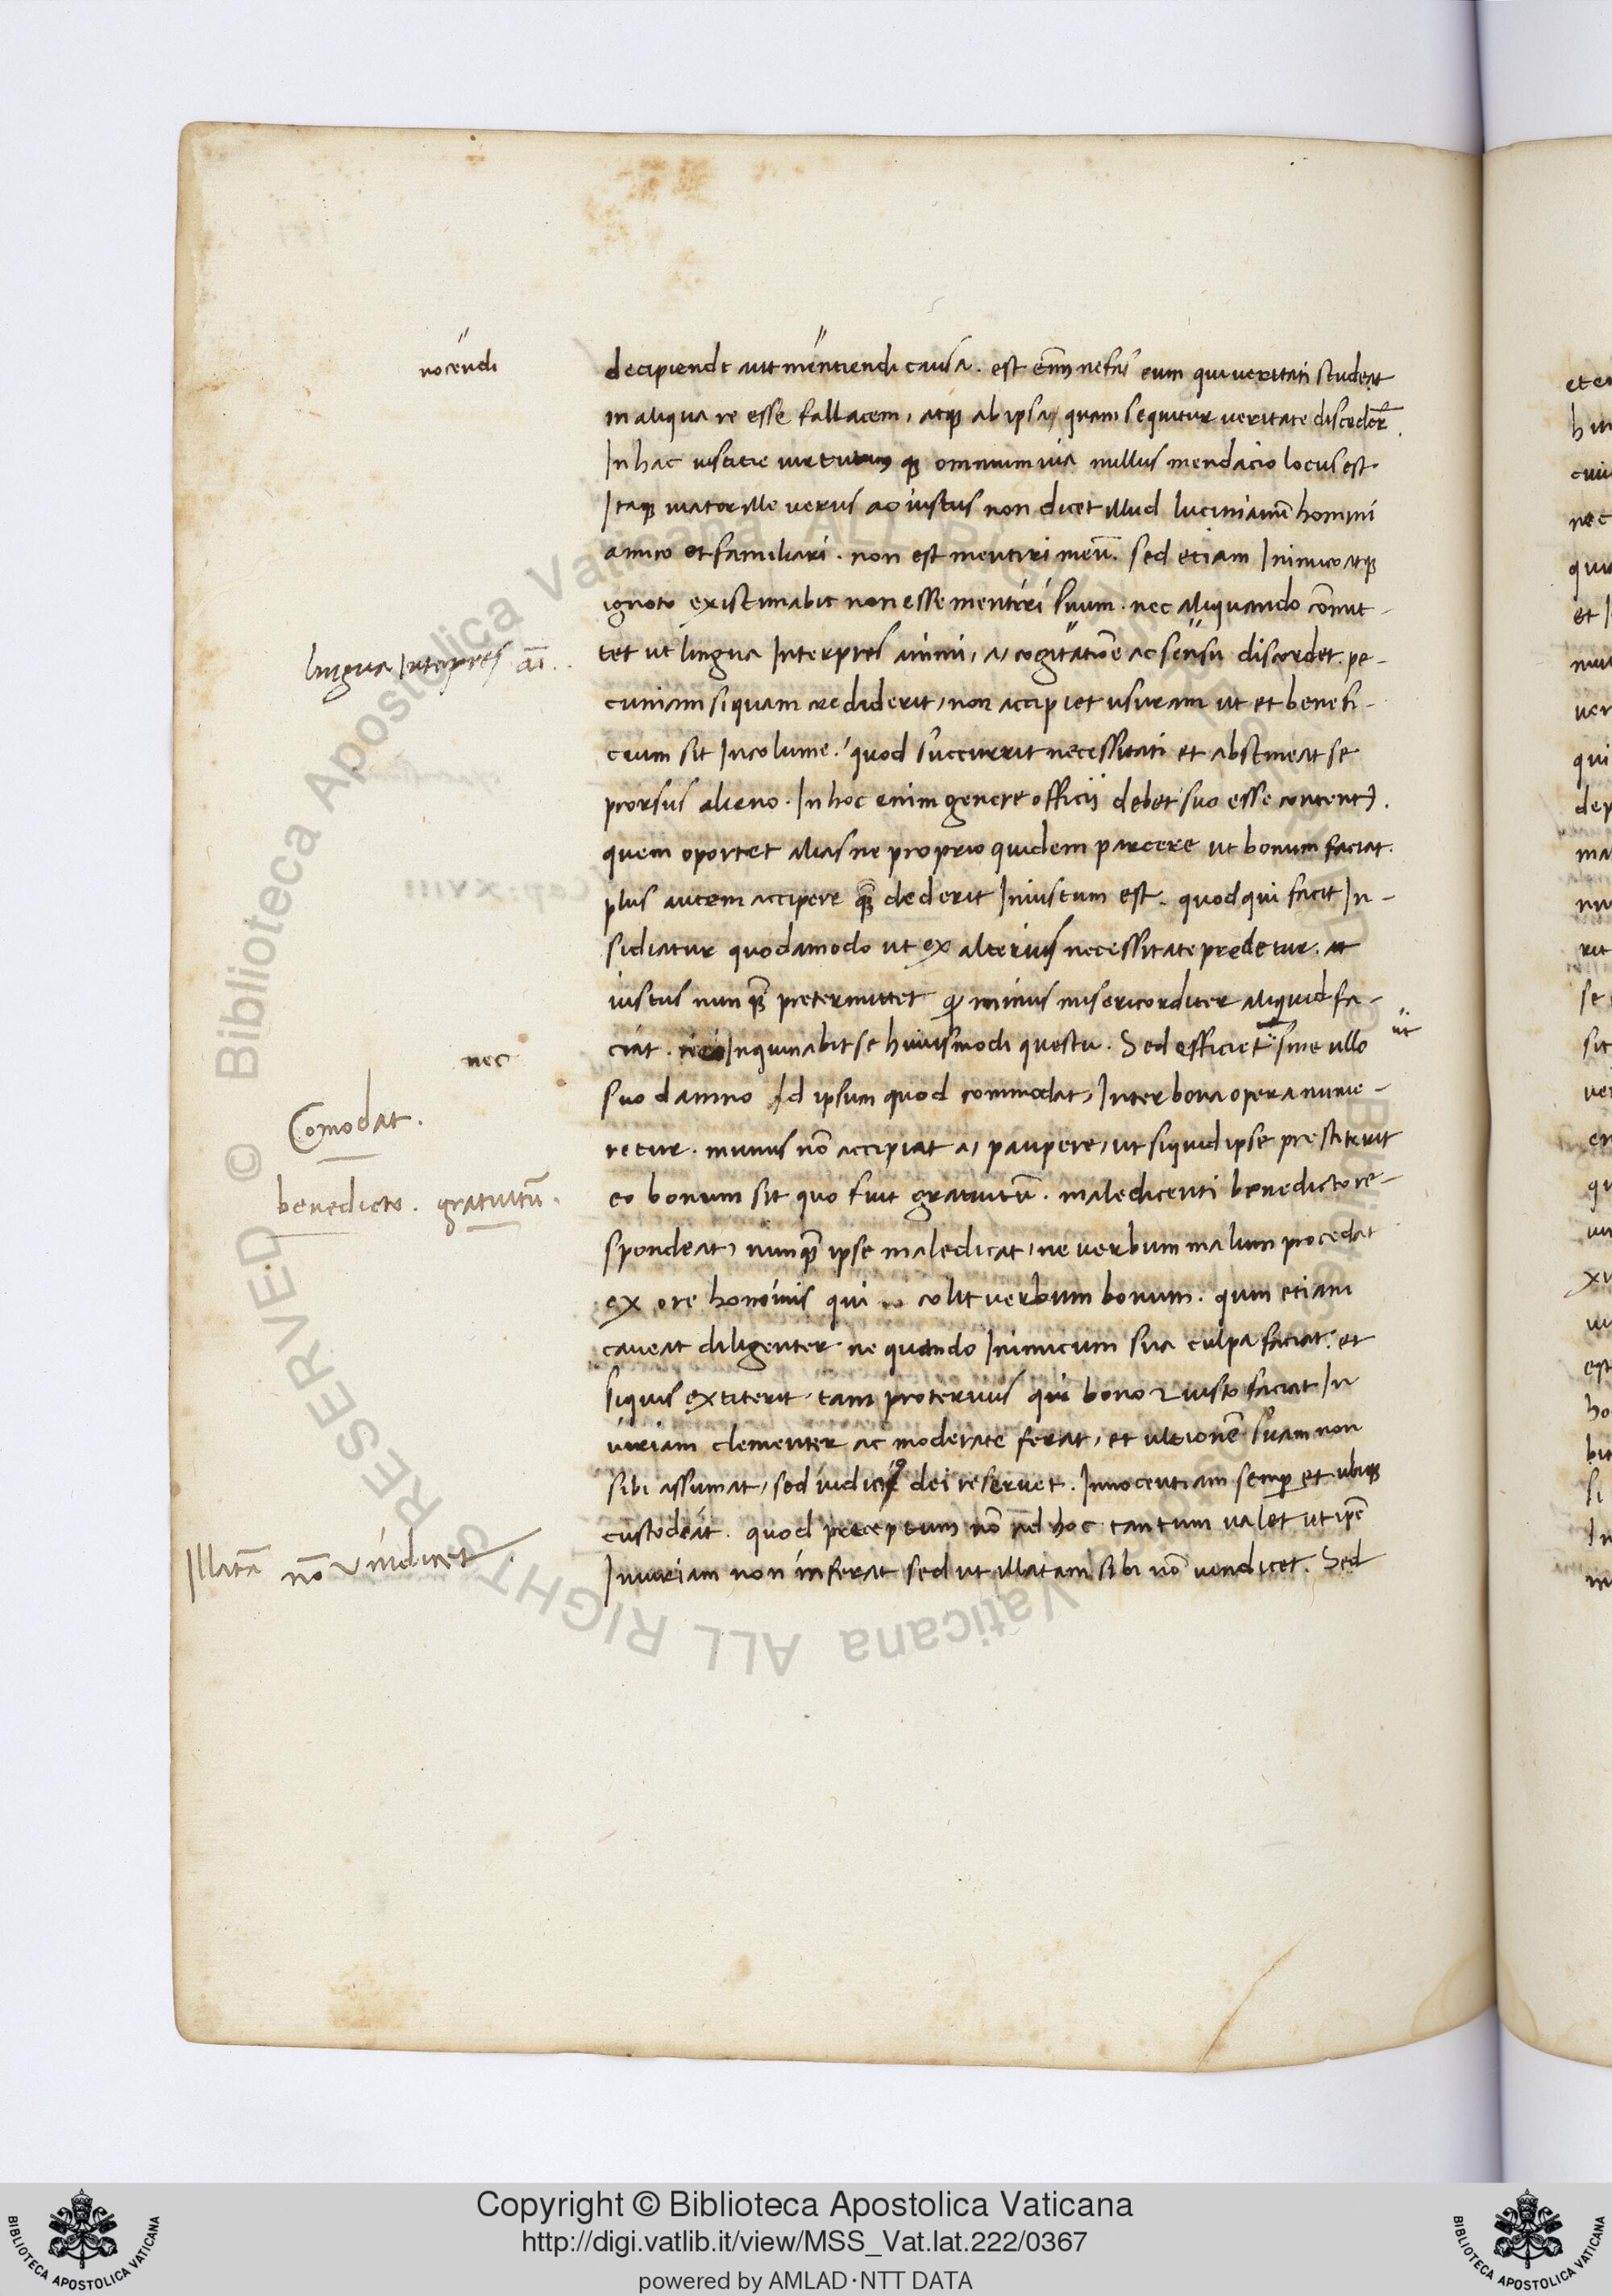 nocendi
decipiendi aut mentiendi causa. est enī nefas eum qui veritati studeat
in aliqua re esse fallacem, atq; ab ipsa, quam sequitur veritate discedere.
In hac iustitie virtutum q; omnium via nullus mendacio locus est.
Itaq; viator ille verus ac iustus non dicet illud lucinianū homini
amico et familiari. non est mentiri meū. sed etiam Inimico atq;
ignoto existimabit non esse mentiri suum. nec aliquando cōmit-
lingua Interpres aī.
tet ut lingua Interpres animi, a, cogitatiōe ac sensu discordet. pe-
cuniam siquam crediderit, non accipiet usuram ut et benefi-
cium sit Incolume. quod succurrit necessitati et abstineat se
prorsus alieno. In hoc enim genere officii debet suo esse content9.
quem oportet alias ne proprio quidem parcere ut bonum faciat.
plus autem accipere q̄ dederit Iniustum est. quod qui facit In-
sidiatur quodamodo ut ex alterius necessitate predetur. at
iustus nunq̄ pretermittet q minus misericorditer aliquid fa-
nec
ciat. nec Inquinabit se huiusmodi questu. Sed efficiet sine ullo
ut
suo damno Id ipsum quod commodat, Inter bona opera nume-
Comodat.
retur. munus nō accipiat a, paupere, ut siquid ipse prestiterit
benedicto. gratuitū.
eo bonum sit quo fuit gratuitū. maledicenti benedicto re-
spondeat, nunq̄ ipse maledicat, ne verbum malum procedat
ex ore hominis qui colit verbum bonum. quin etiam
caveat diligenter ne quando Inimicum sua culpa faciat. et
siquis extiterit tam protervus qui bono & iusto faciat In
iuriam clementer ac moderate ferat, et ultionē suam non
sibi assumat, sed iudicio dei reservet. Innocentiam semp et ubiq;
custodeat. quod preceptum nō ad hoc tantum valet ut ipē
Illatā nō vindicet.
Iniuriam non inferat sed ut illatam sibi nō vendicet. Sed
Copyright © Biblioteca Apostolica Vaticana
http://digi.vatlib.it/view/MSS_Vat.lat.222/0367
powered by AMLAD·NTT DATA